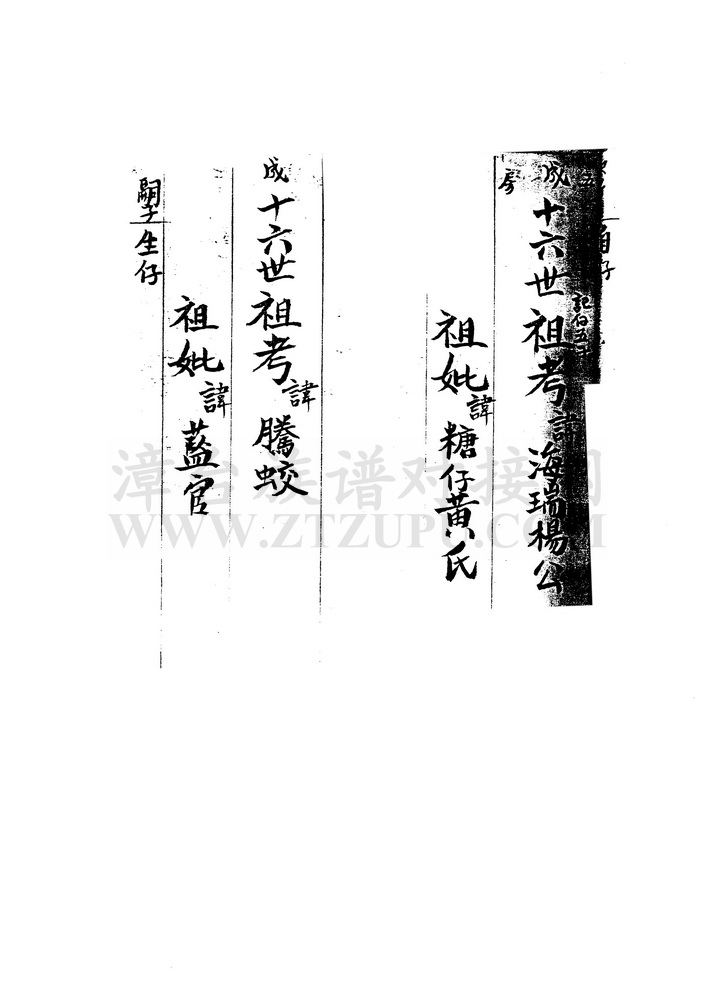 房
成十六世祖考諱海瑞楊公
祖妣諱糖仔黃氏
成十六世祖考諱騰蛟
祖妣諱藍官
嗣子生仔
漳台族谱对接网
WWW.ZTZUPU.COM